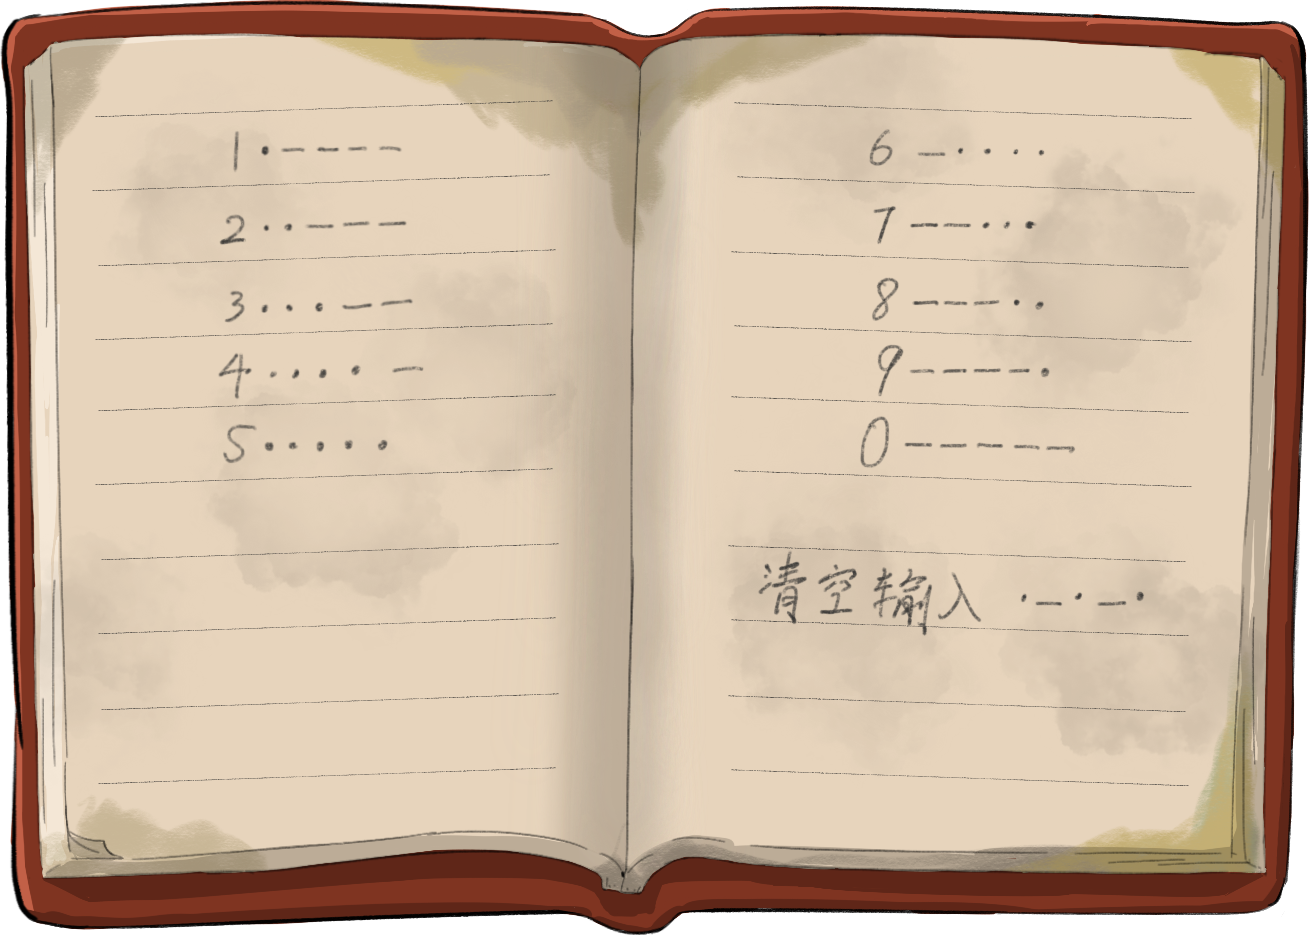 1 ·————
2 ··———
3 ···——
4 ····—
5 ·····
6 —····
7 ——···
8 ———··
9 ————·
0 —————
清空输入 ·—·—·